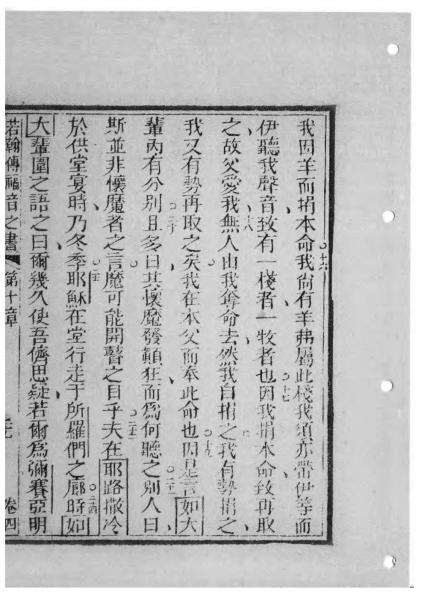 我因羊而捐本命我尚有羊弗屬此棧我須亦帶伊等而
伊聽我聲音致有一棧者一牧者也因我捐本命致再取
之故父愛我無人由我奪命去然我自捐之我有勢捐之
我又有勢再取之矣我在本父而奉此命也因是言如大
輩內有分別且多曰其懷魔發顛狂而為何聽之別人曰
斯並非懷魔者之言魔可能開瞽之目乎夫在耶路撒冷
於供堂宴時乃冬季耶穌在堂行走于所羅們之廊時如
大輩圍之語之曰爾幾久使吾儕思疑若爾為彌賽亞明
若翰傳福音之書 第十章 卷四